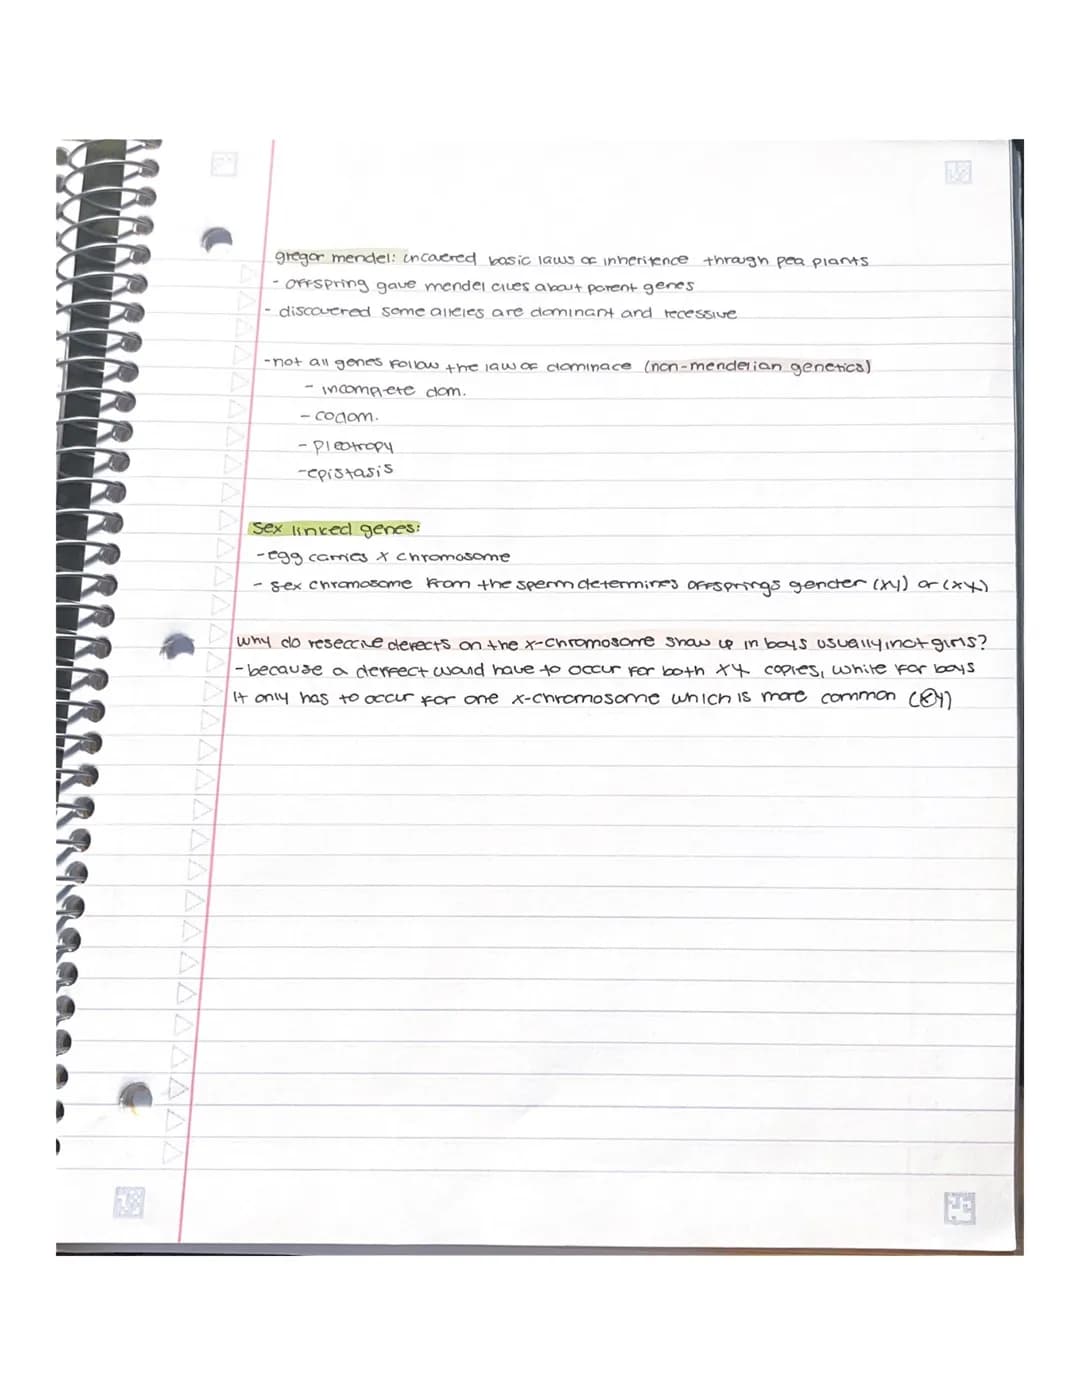 gregor mendel: uncovered basic laws of inheritence through pea plants
- offspring gave mendel clues about parent genes
- discovered some alleles are dominant and recessive
- not all genes follow the law of dominace (non-menderian genetics)
- incomplete dom.
- codom.
- pleotropy
- epistasis
Sex linked genes:
- egg carries x chromosome
- sex chromosome from the sperm determines offsprings gender (xy) or (xx)
why do reseccive defects on the x-chromosome show up in boys usually, not girls?
- because a deffect would have to occur for both xx copies, while for boys
it only has to occur for one x-chromosome which is more common (xy)